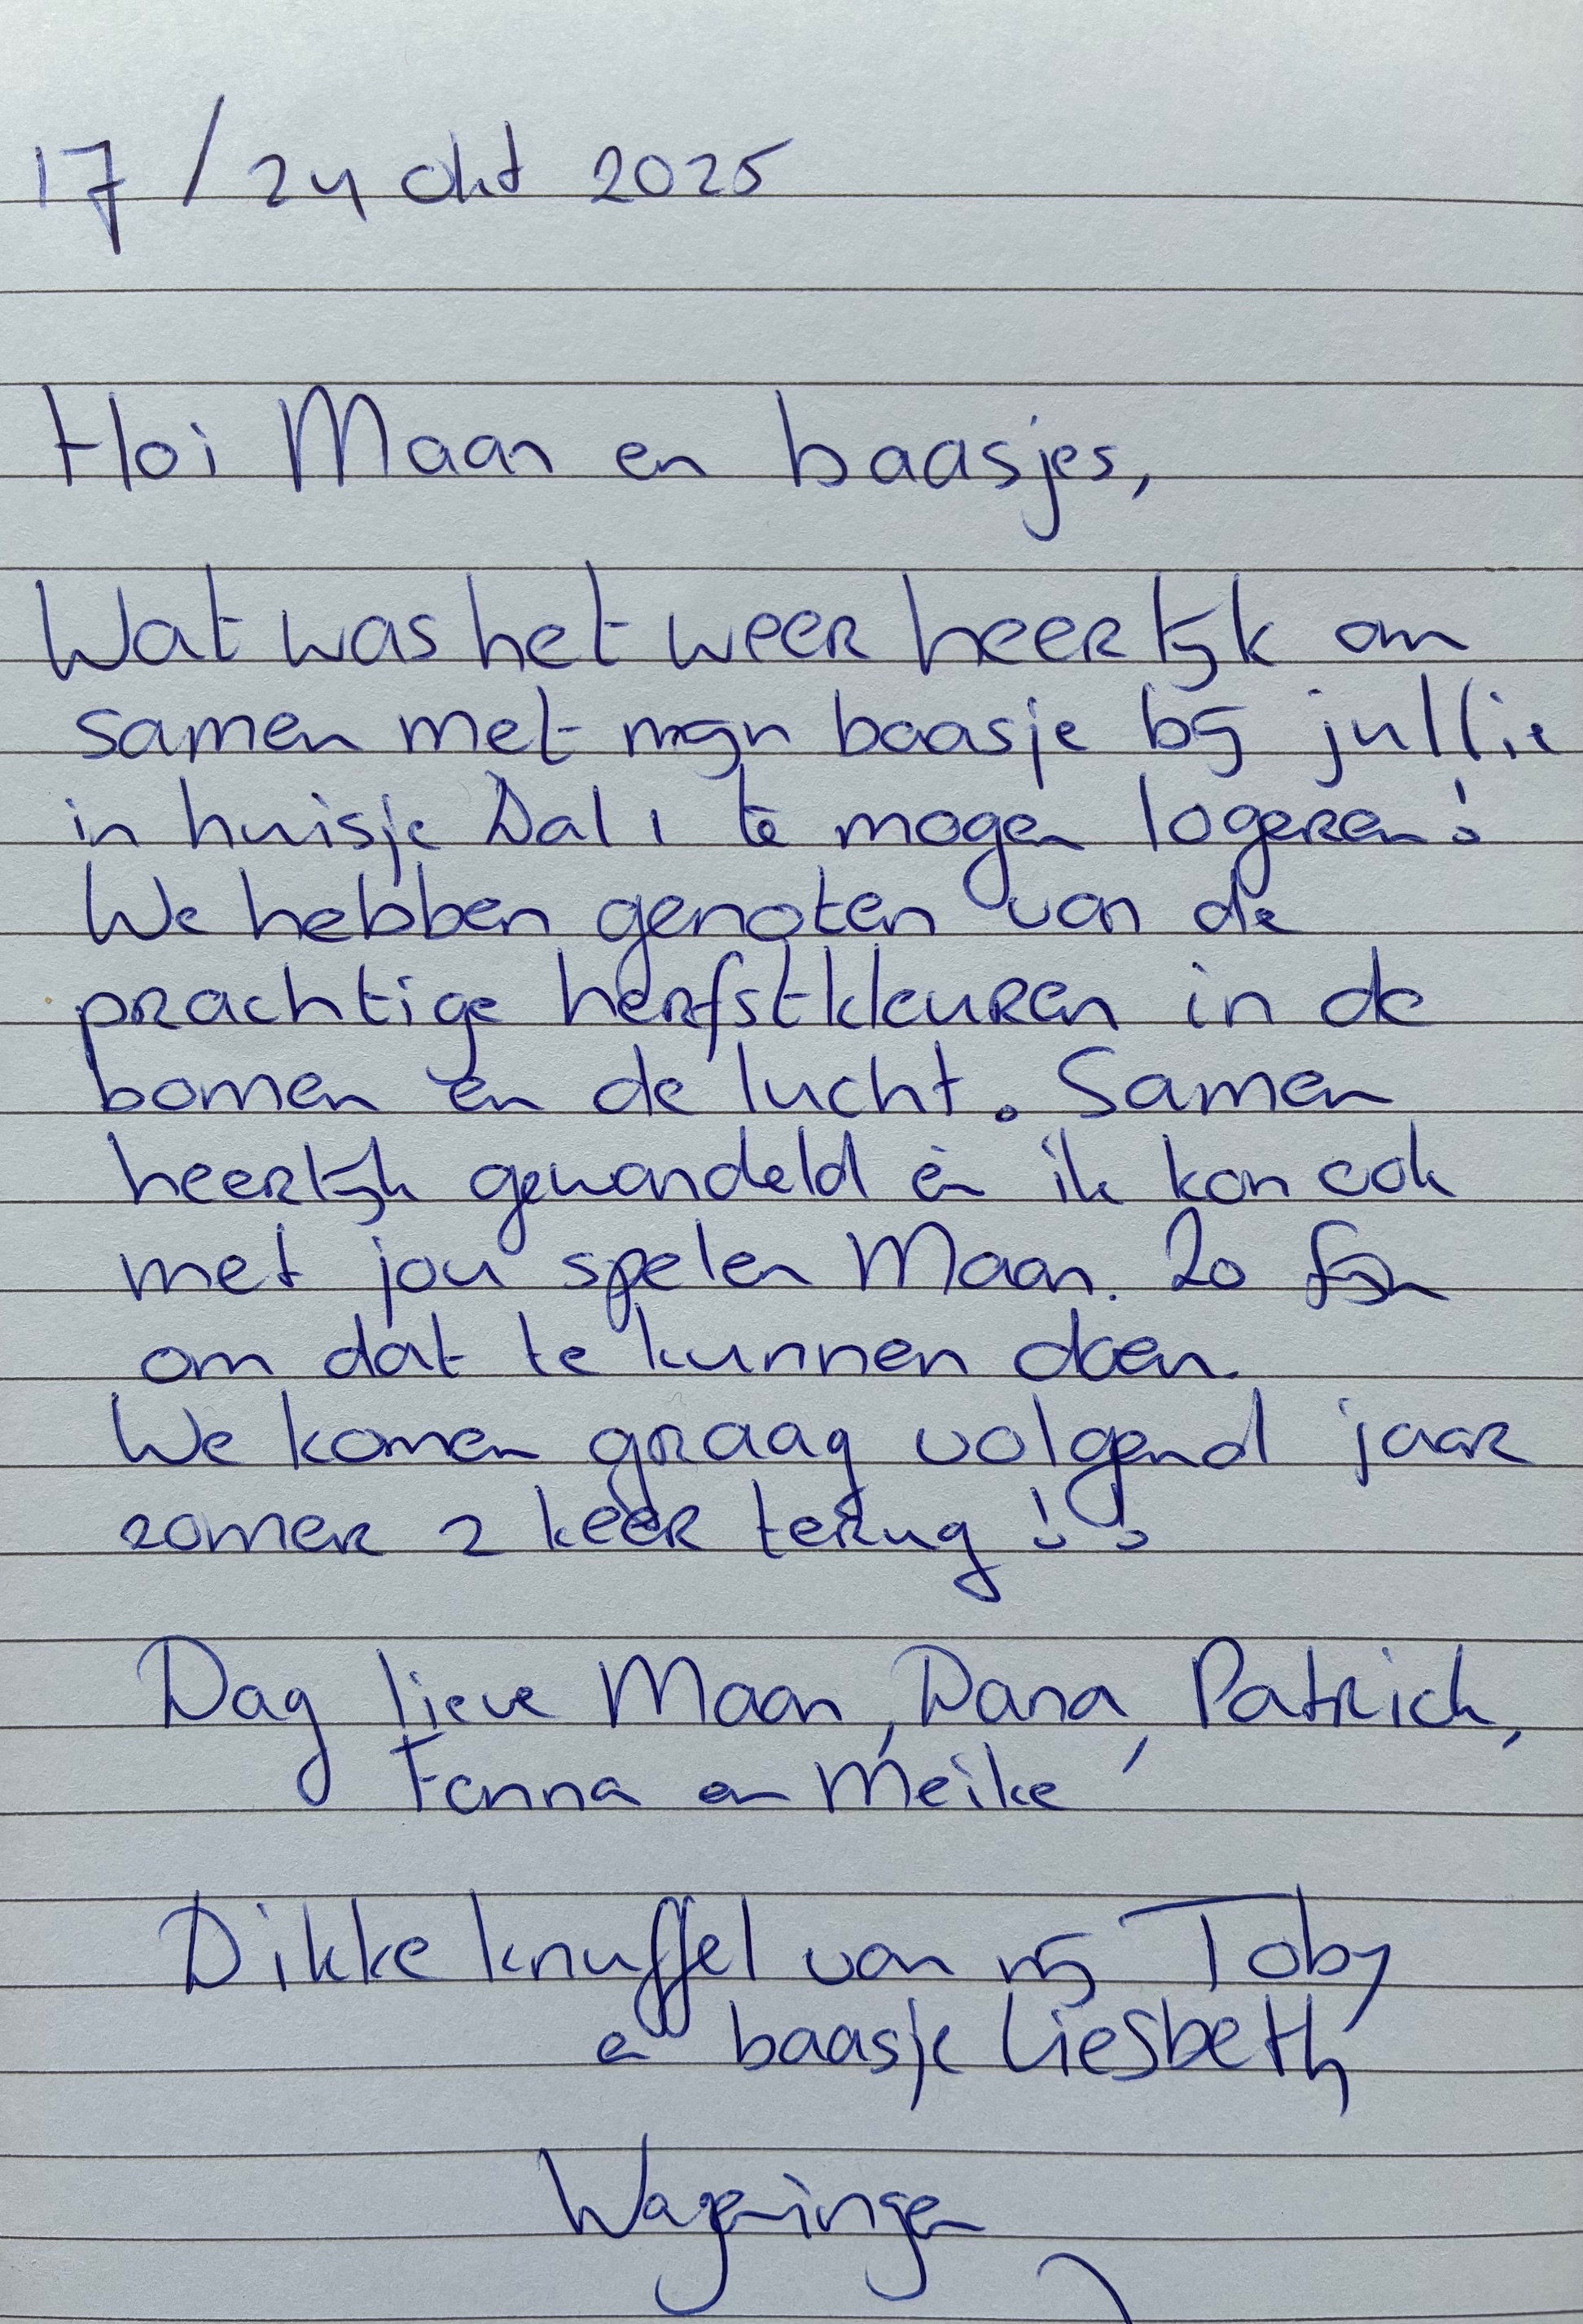 17 / 24 okt 2025
Hoi Maan en baasjes,
Wat was het weer heerlijk om
samen met mijn baasje bij jullie
in huisje Dal 1 te mogen logeren!
We hebben genoten van de
prachtige herfstkleuren in de
bomen en de lucht. Samen
heerlijk gewandeld èn ik kon ook
met jou spelen Maan. Zo fijn
om dat te kunnen doen.
We komen graag volgend jaar
zomer 2 keer terug!!
Dag lieve Maan, Dana, Patrick,
Fenna en Meike
Dikke knuffel van mij Toby
en baasje Liesbeth
Wageningen